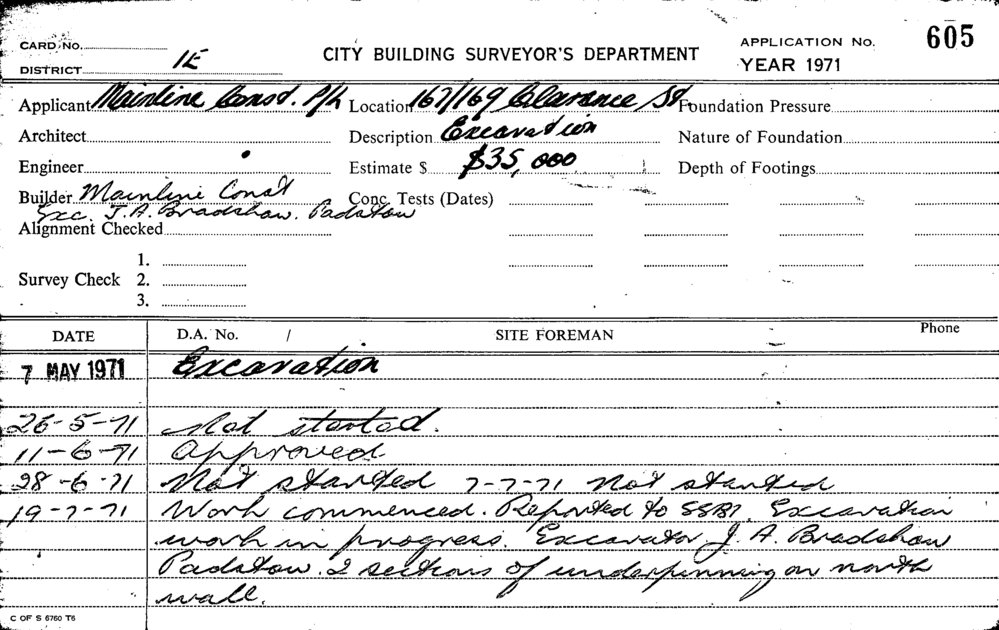 CARD NO.
DISTRICT 1E
CITY BUILDING SURVEYOR'S DEPARTMENT
APPLICATION No. 605
YEAR 1971
Applicant Mainline Const. P/L Location 167/169 Clarence St. Foundation Pressure
Architect Description Excavation Nature of Foundation
Engineer Estimate $ $35,000 Depth of Footings
Builder Mainline Const Conc. Tests (Dates)
Exc. J.A. Bradshaw. Padstow
Alignment Checked
1.
Survey Check 2.
3.
DATE D.A. No. / SITE FOREMAN Phone
7 MAY 1971 Excavation
26-5-71 Not started.
11-6-71 Approved
28-6-71 Not started 7-7-71 Not started
19-7-71 Work commenced. Reported to SSBI. Excavation
work in progress. Excavator J. A. Bradshaw
Padstow. 2 sections of underpinning on north
wall.
C OF S 6760 T6